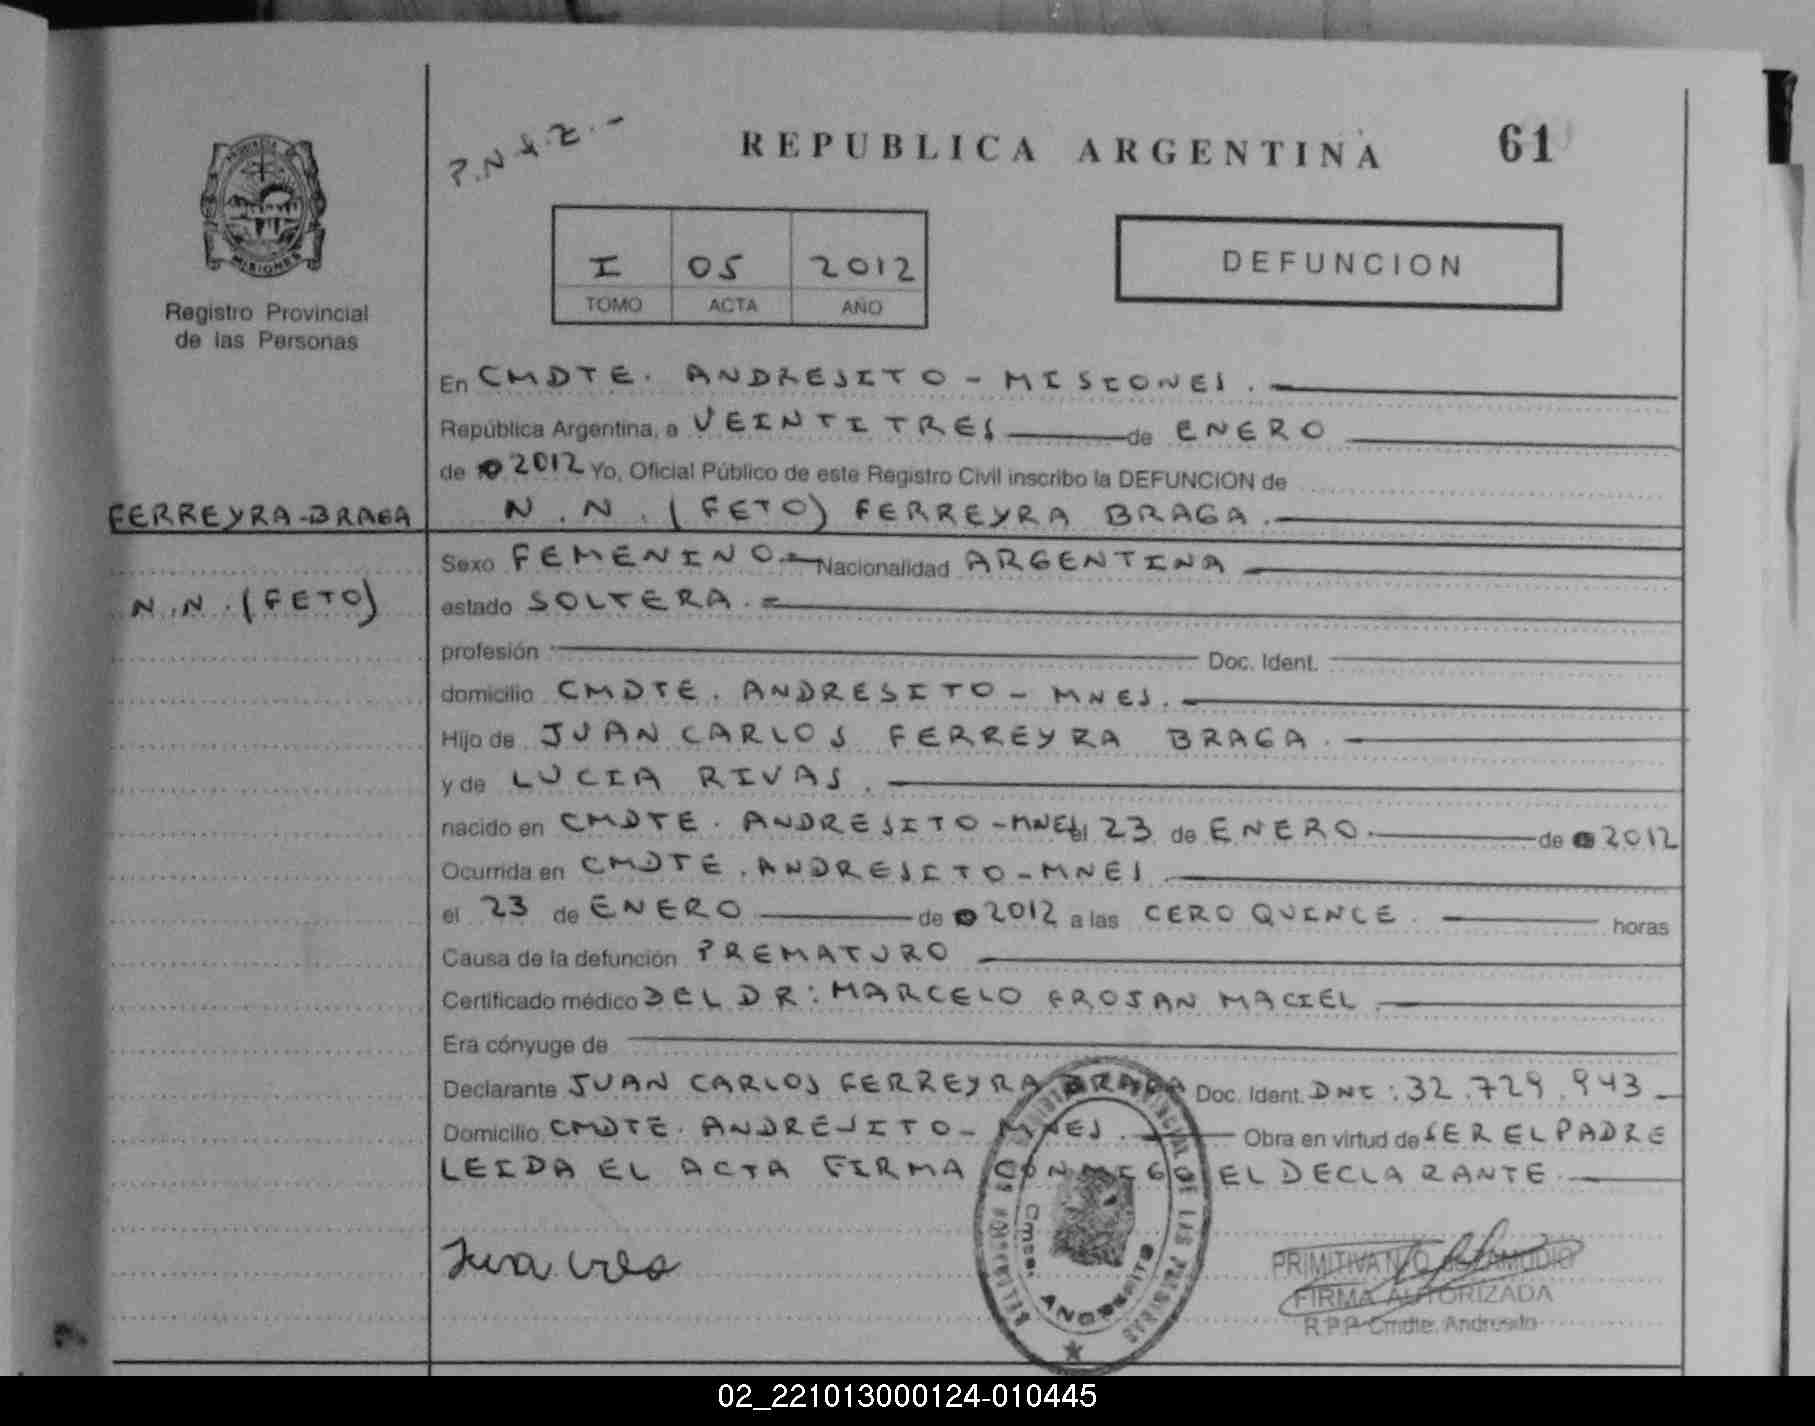 P.N.&.Z.-
REPUBLICA ARGENTINA 61
I 05 2012
TOMO ACTA AÑO
DEFUNCION
MISIONES
Registro Provincial
de las Personas
En CMDTE. ANDRESITO - MISIONES.
República Argentina, a VEINTITRES de ENERO
de 2012 Yo, Oficial Público de este Registro Civil inscribo la DEFUNCION de
FERREYRA-BRAGA N.N. (FETO) FERREYRA BRAGA.
Sexo FEMENINO.- Nacionalidad ARGENTINA
N.N. (FETO) estado SOLTERA.-
profesión Doc. Ident.
domicilio CMDTE. ANDRESITO - MNES.
Hijo de JUAN CARLOS FERREYRA BRAGA.
y de LUCIA RIVAS.
nacido en CMDTE. ANDRESITO - MNES el 23 de ENERO. de 2012
Ocurrida en CMDTE. ANDRESITO - MNES
el 23 de ENERO de 2012 a las CERO QUINCE. horas
Causa de la defunción PREMATURO
Certificado médico DEL DR: MARCELO FROJAN MACIEL.
Era cónyuge de
Declarante JUAN CARLOS FERREYRA BRAGA Doc. Ident. DNI: 32.729.943
Domicilio CMDTE. ANDRESITO - MNES. Obra en virtud de SER EL PADRE
LEIDA EL ACTA FIRMA CONMIGO EL DECLARANTE.
Cmdte. ANDRESITO
FIRMA AUTORIZADA
R.P.P. Cmdte. Andresito
02_221013000124-010445